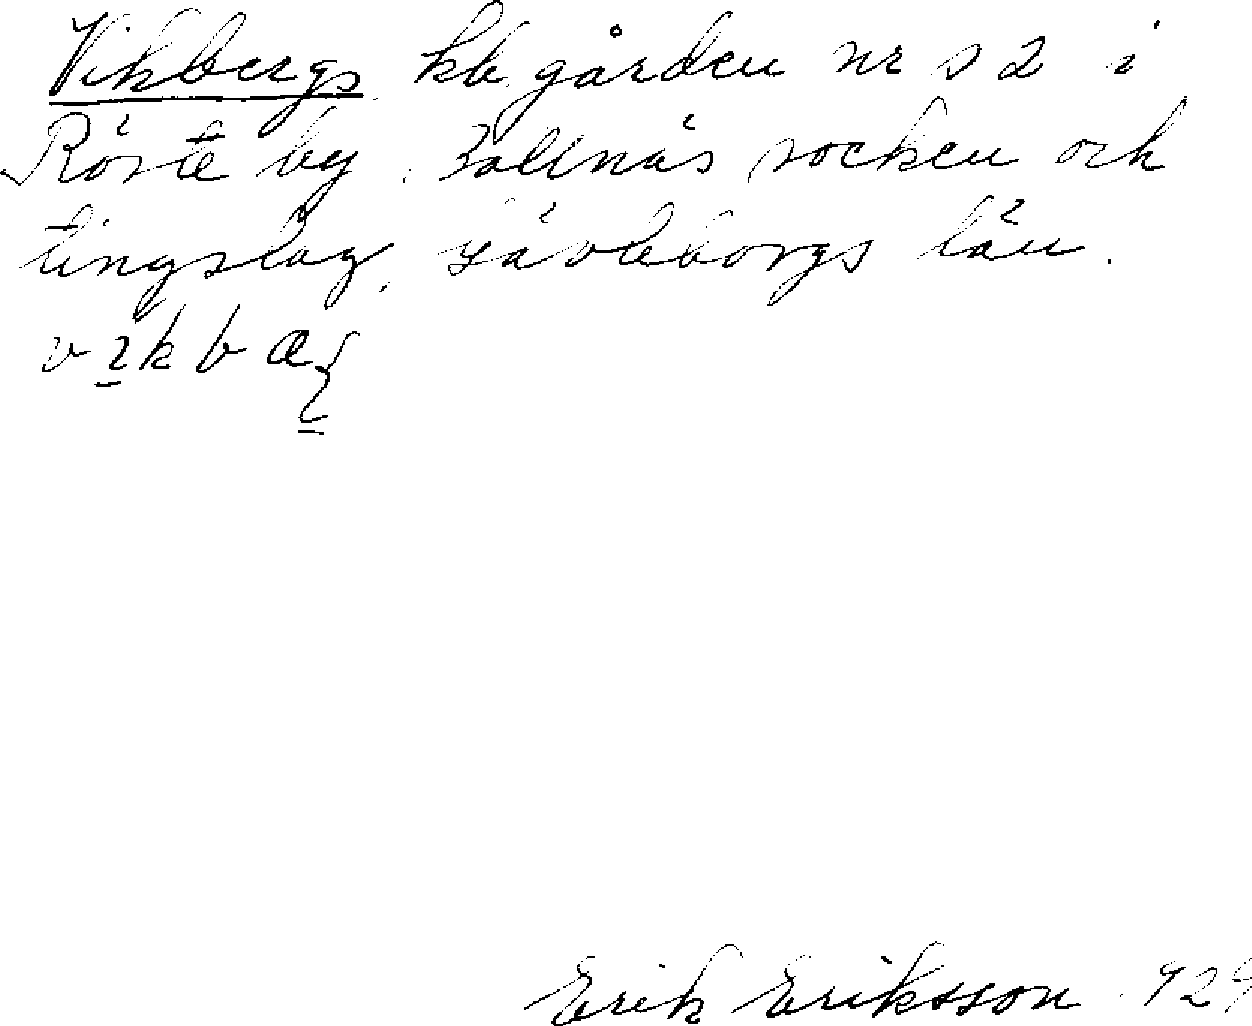 Vikbergs, kb, gården nr s 2 i
Röste by, Bollnäs socken och
tingslag, Gävleborgs län.
Erik Eriksson 929